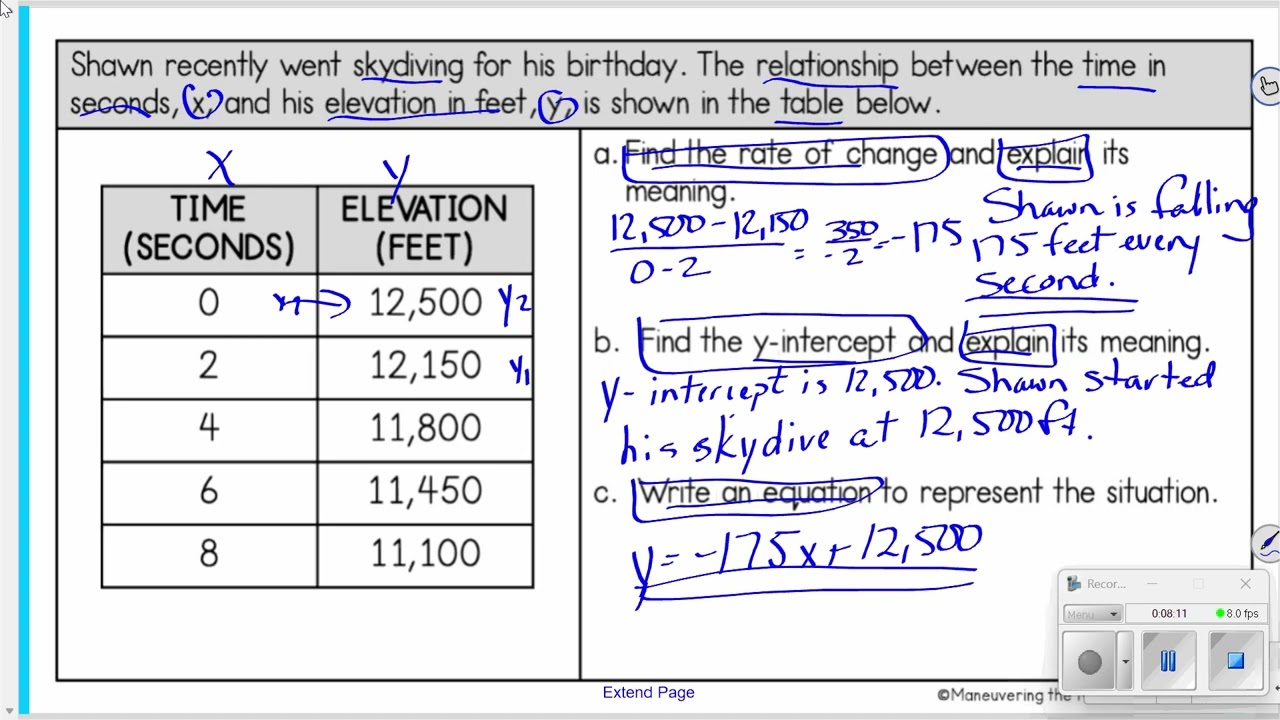 Shawn recently went skydiving for his birthday. The relationship between the time in
seconds, x, and his elevation in feet, y, is shown in the table below.
x y
TIME (SECONDS) ELEVATION (FEET)
0 12,500 y2
2 12,150 y1
4 11,800
6 11,450
8 11,100
a. Find the rate of change and explain its
meaning.
12,500 - 12,150 / 0 - 2 = 350 / -2 = -175
Shawn is falling
175 feet every
second.
b. Find the y-intercept and explain its meaning.
y-intercept is 12,500. Shawn started
his skydive at 12,500 ft.
c. Write an equation to represent the situation.
y = -175x + 12,500
Extend Page
©Maneuvering the
Recor...
Menu 0:08:11 8.0 fps